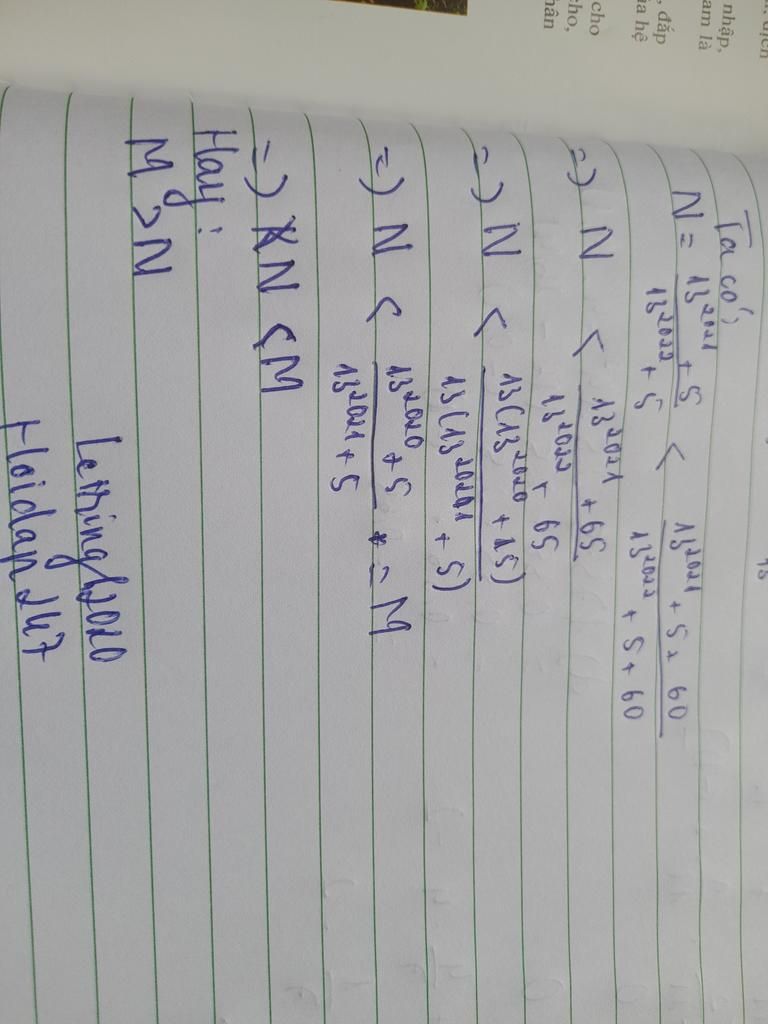 , dịch
nhập,
am là
, đắp
ia hệ
cho
cho,
hân
Ta có:
N = 13^2021 + 5 / 13^2022 + 5 < 13^2021 + 5 + 60 / 13^2022 + 5 + 60
=) N < 13^2021 + 65 / 13^2022 + 65
=) N < 13(13^2020 + 5) / 13(13^2021 + 5)
=) N < 13^2020 + 5 / 13^2021 + 5 = M
=) N < M
Hay:
M > N
Hoidap247